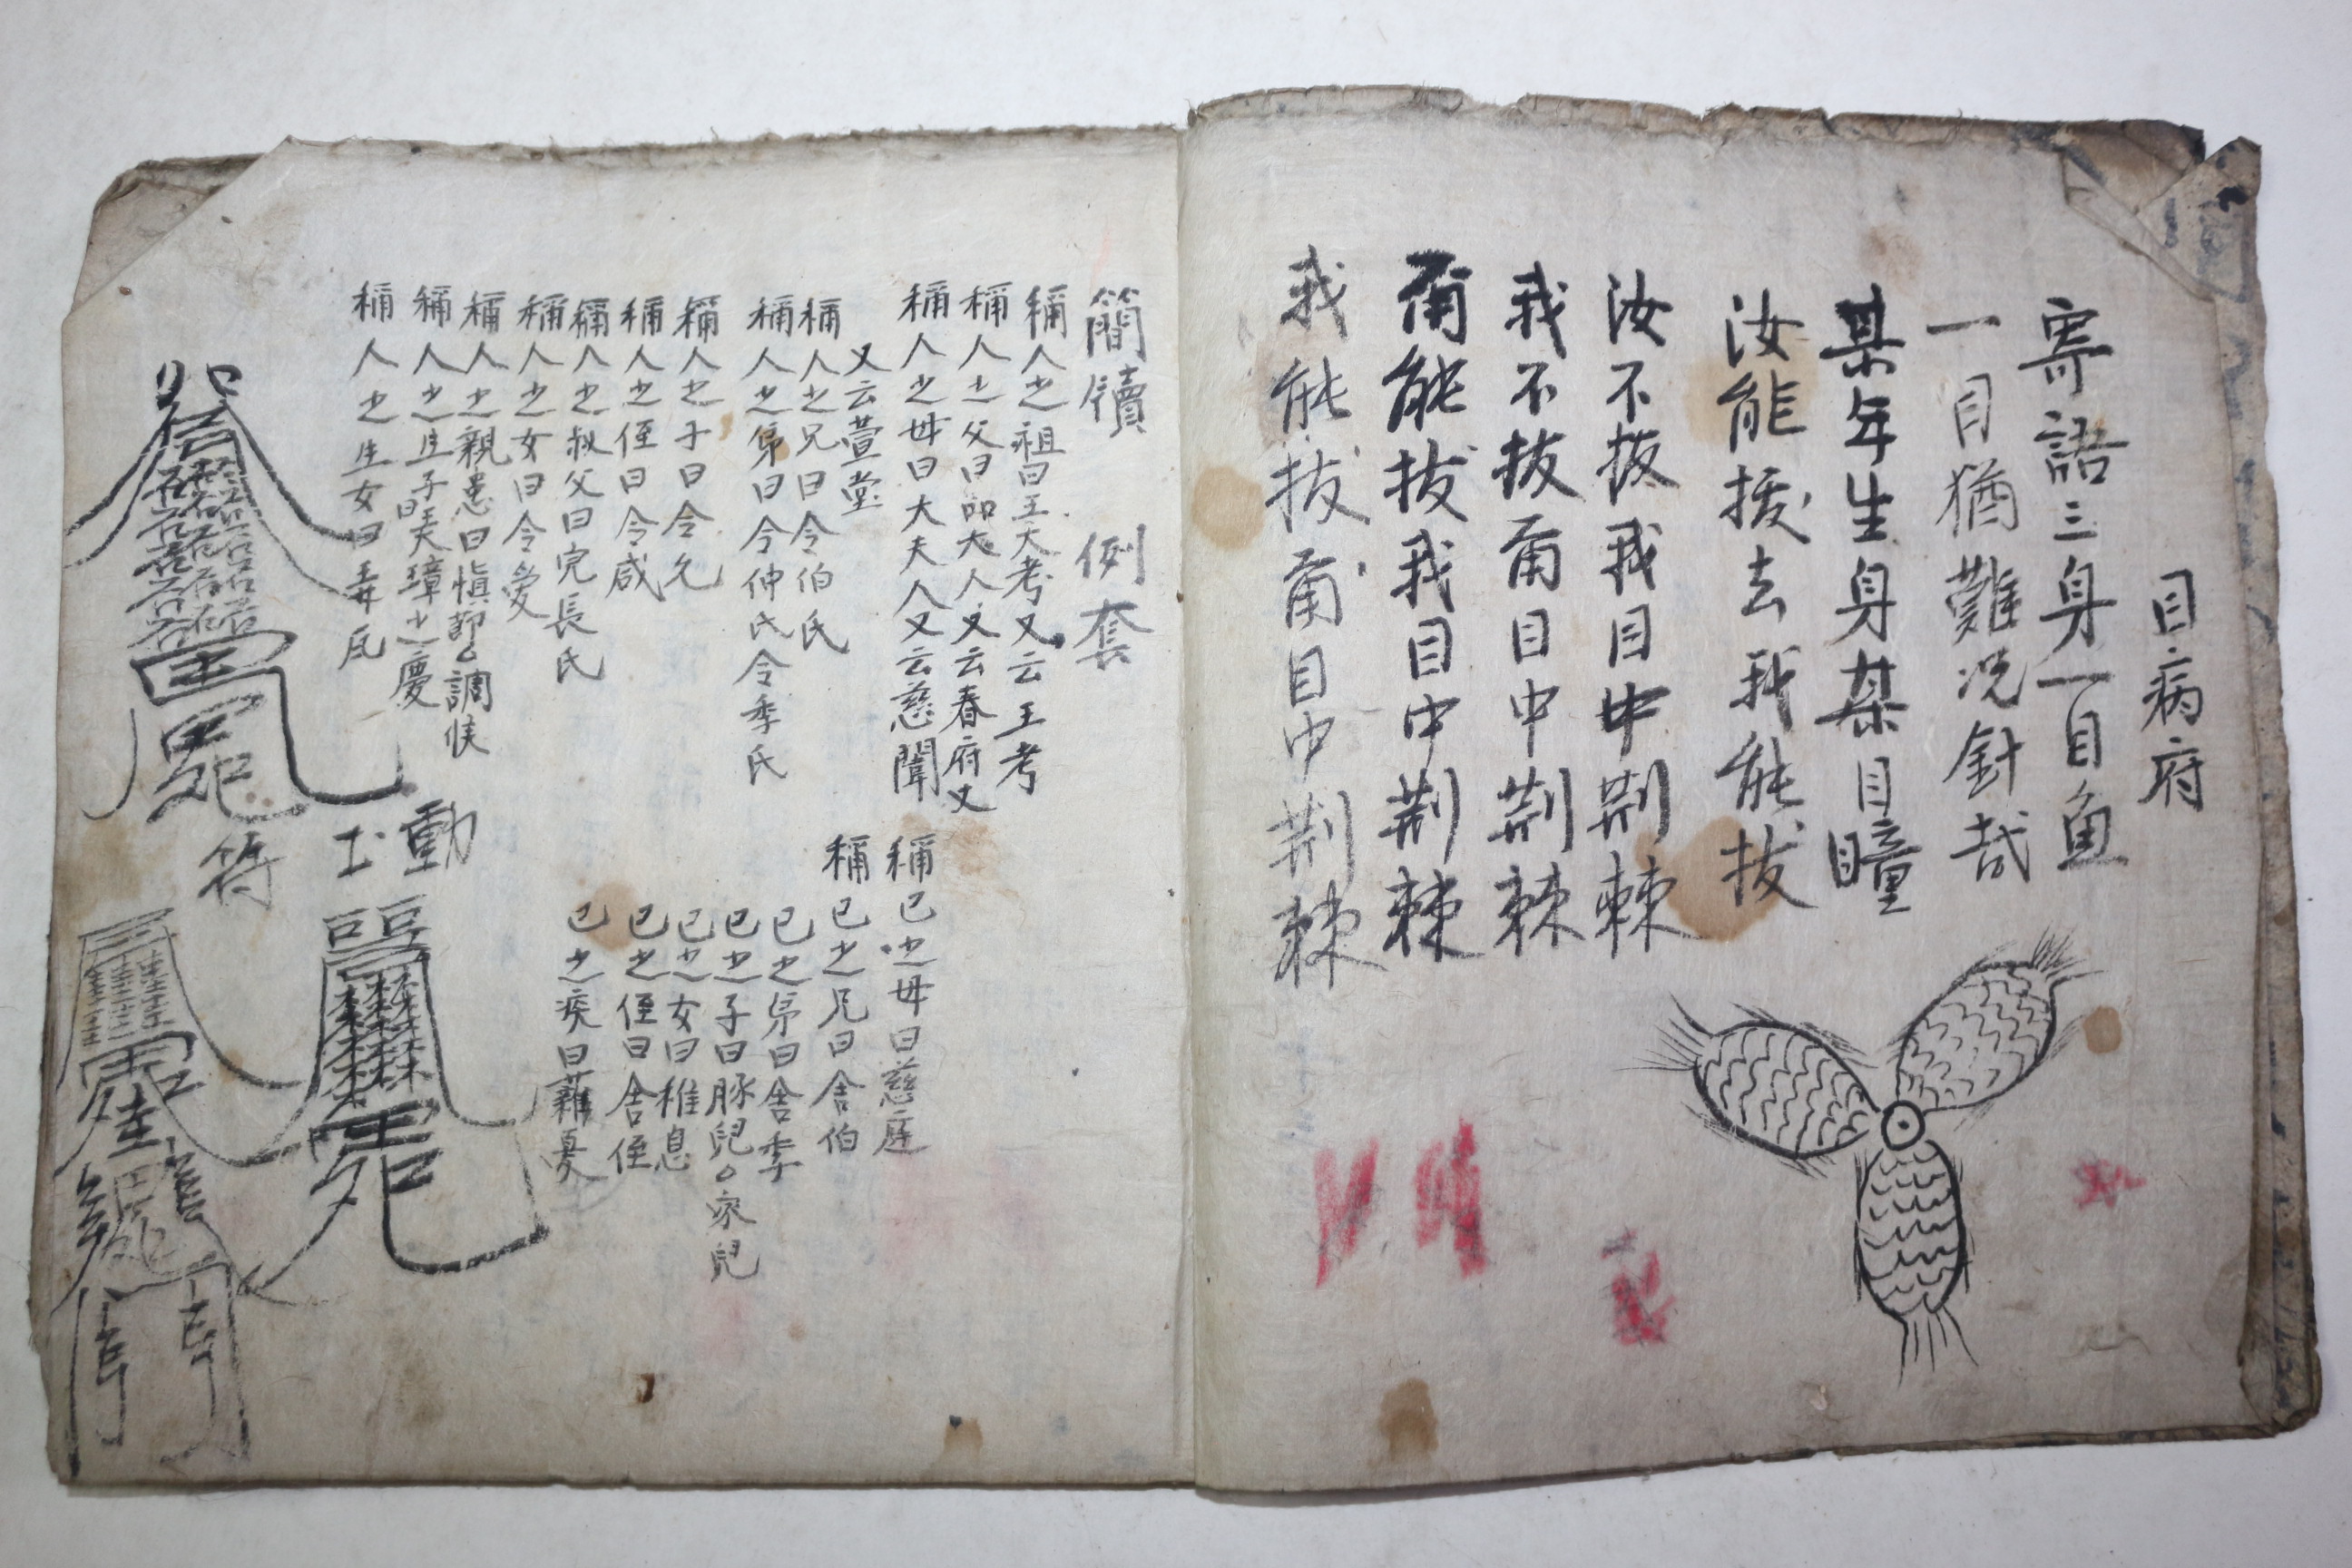 目病府
寄語三身一目魚
一目猶難況針哉
某年生身某目瞳
汝能拔去我能拔
汝不拔我目中荆棘
我不拔爾目中荆棘
爾能拔我目中荆棘
我能拔爾目中荆棘
簡牘 例套
稱人之祖曰王大考又云王考
稱人之父曰大人又云春府又
稱人之母曰大夫人又云慈闈
又云萱堂
稱人之兄曰令伯氏
稱人之弟曰令仲氏令季氏
稱人之子曰令允
稱人之侄曰令咸
稱人之叔父曰完長氏
稱人之女曰令愛
稱人之親患曰愼節。調候
稱人之生子曰弄璋之慶
稱人之生女曰弄瓦
稱己之母曰慈庭
稱己之兄曰舍伯
己之弟曰舍季
己之子曰豚兒。家兒
己之女曰稚息
己之侄曰舍侄
己之疾曰憂
動土
符